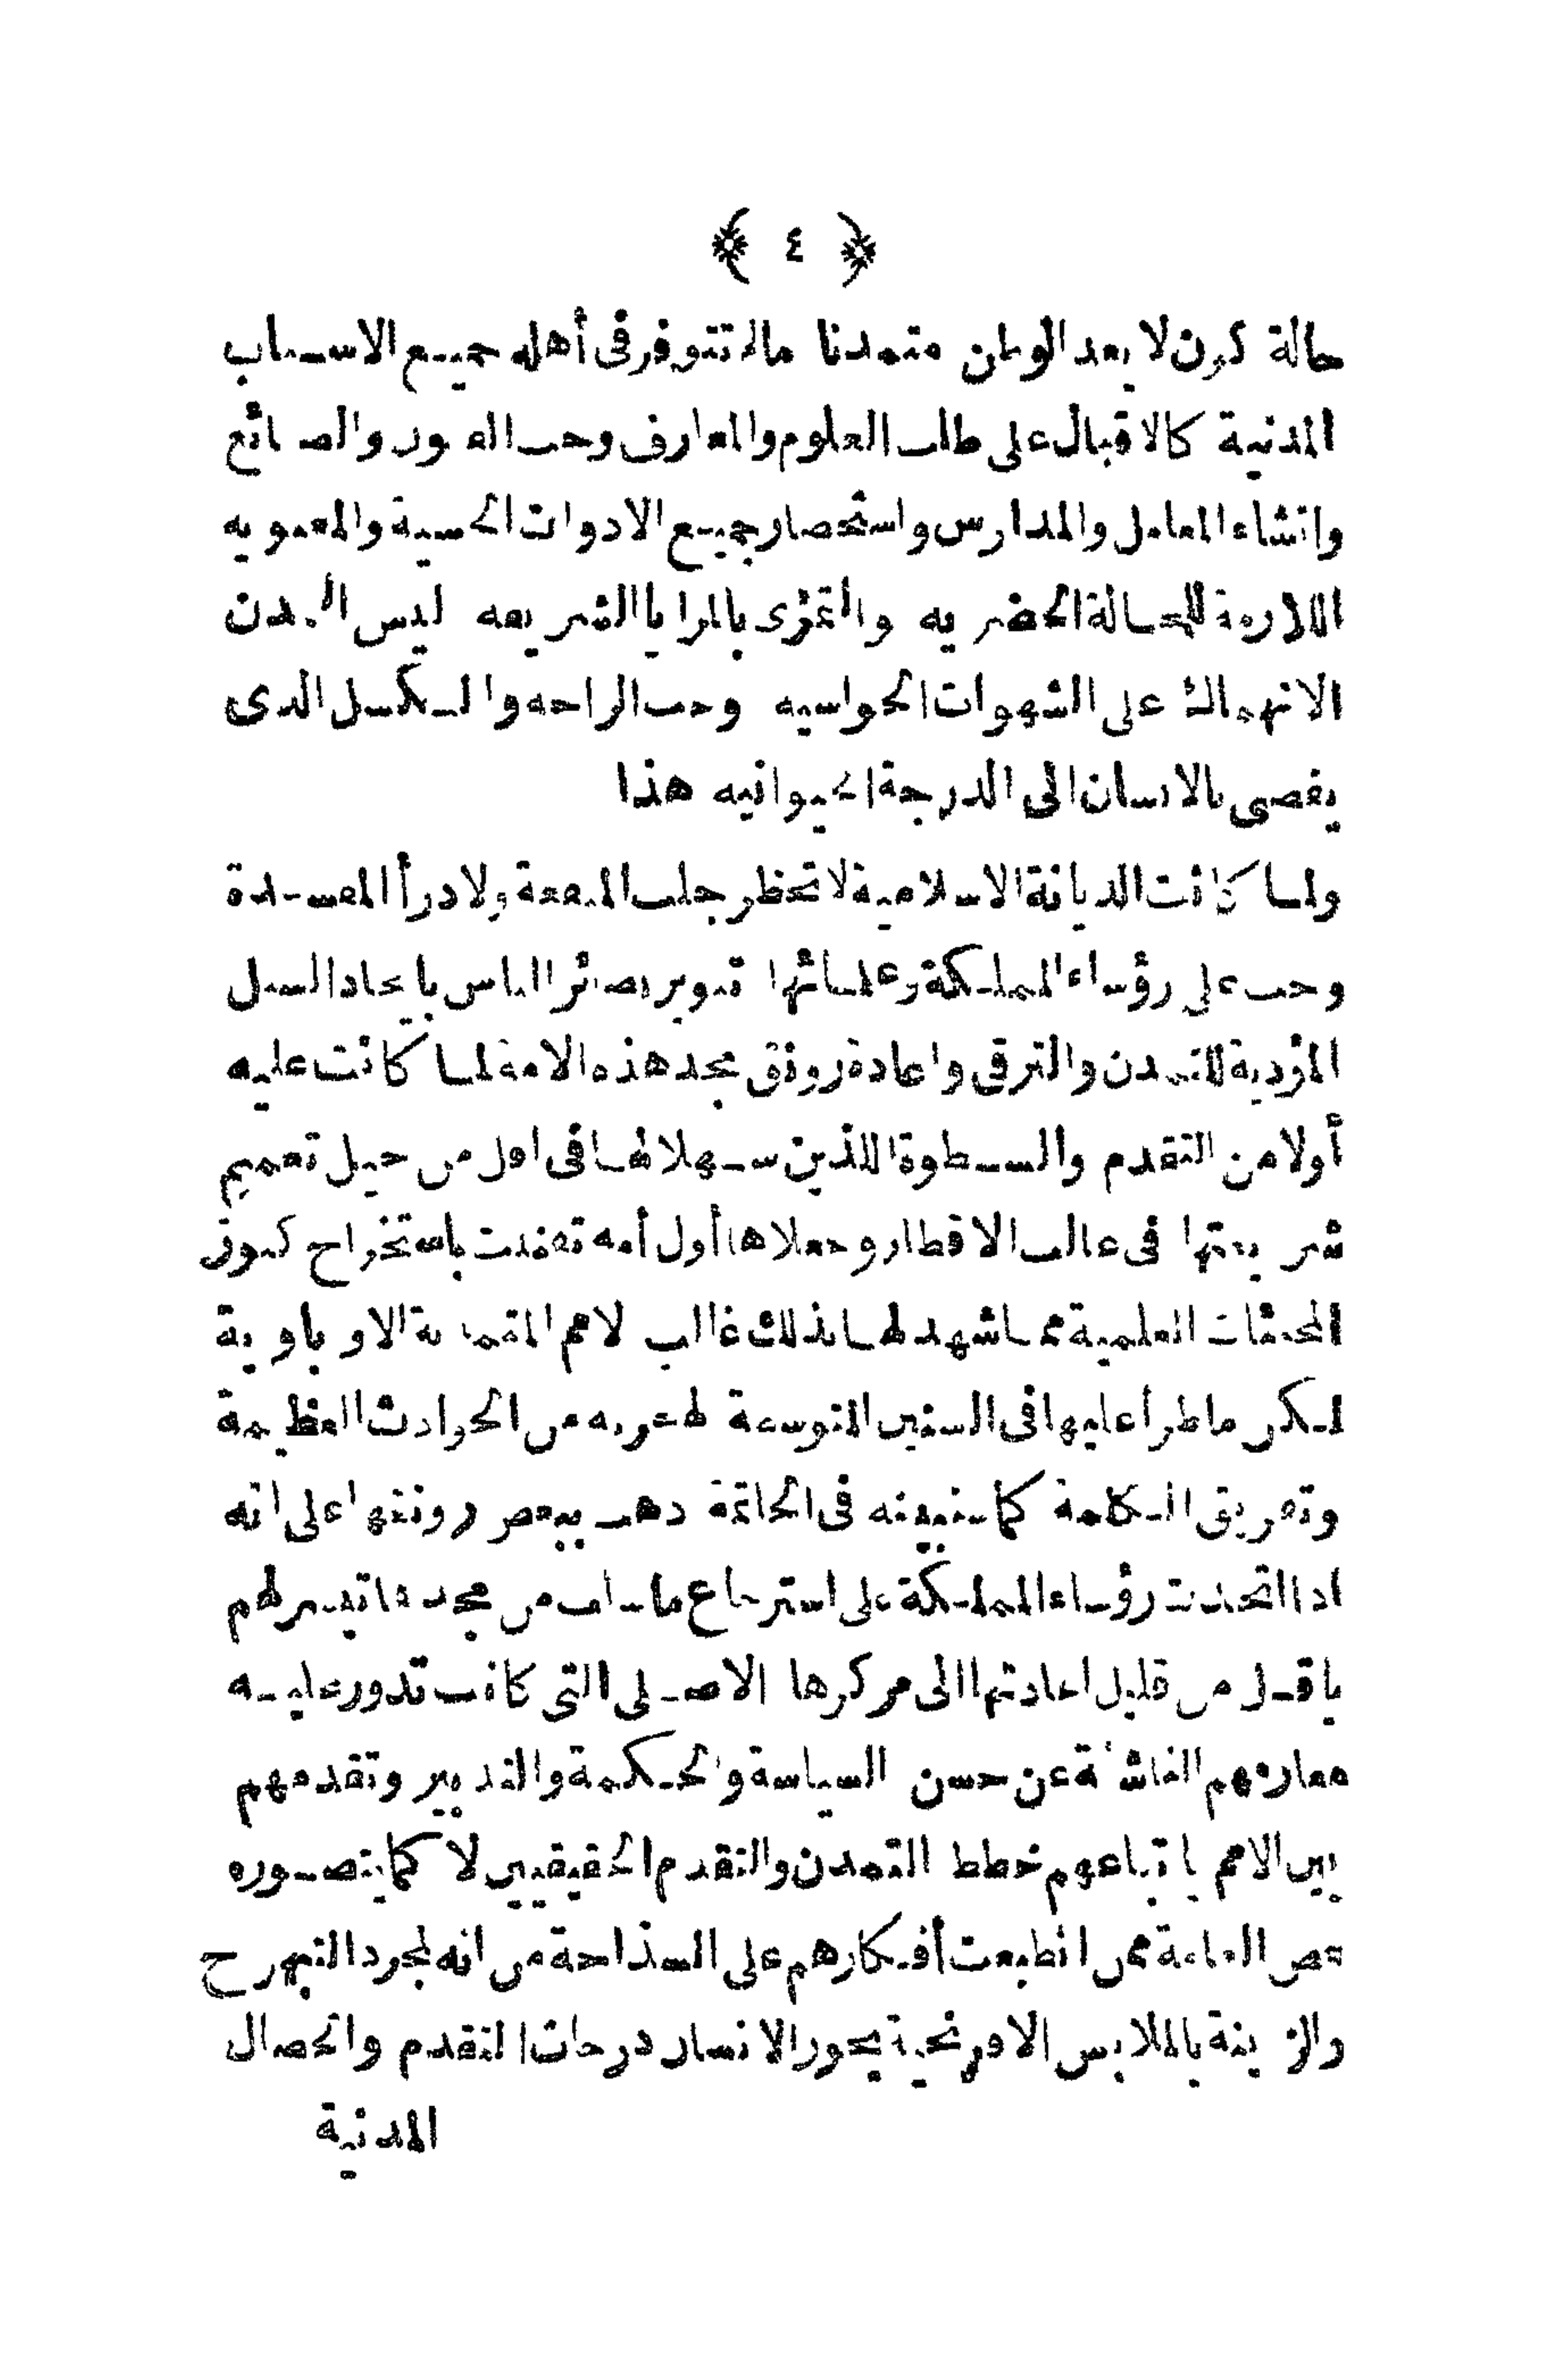 ﴿ ٤ ﴾
حالة كون لا يعد الوطن متمدنا مالم تتوفر فى أهله جميع الاسباب
المدنية كالاقبال على طلب العلوم والمعارف وحب الفنون والصنائع
وانشاء المعامل والمدارس واستحضار جميع الادوات الحسية والمعنويه
اللازمة للحالة الحضريه والتحرى بالمزايا الشريعه ليس التمدن
الانهماك على الشهوات الحواسيه وحب الراحه والكسل الذى
يفضى بالانسان الى الدرجة الحيوانيه هذا
ولما كانت الديانة الاسلامية لا تحظر جلب المنفعة ولا درأ المفسدة
وجب على رؤساء المملكة وعلمائها تنوير بصائر الناس بايجاد السبل
المؤدية للتمدن والترقى واعادة رونق مجد هذه الامة لما كانت عليه
أولا من التقدم والسطوة اللذين سهلا لها فى اول من جيل تعميم
شريعتها فى غالب الاقطار وجعلاها أول أمه تعهدت باستخراج كنوز
العلمية مما شهد لها بذلك غالب لامم المتمدنة الاوباوية
لكن ما طرأ عليها فى السنين المتوسعة من الحوادث العظيمة
وتفريق الكلمة كما سنبينه فى الخاتمة ذهب ببعض رونقها على انه
اذا اتحدت رؤساء المملكة على استرجاع ما سلف من مجدها تيسر لهم
باقل من قليل اعادتها الى مركزها الاصلى التى كانت تدور عليه
معارفهم الناشئة عن حسن السياسة والحكمة والتدبير وتقدمهم
بين الامم باتباعهم خطط التمدن والتقدم الحقيقيين لا كما يتصوره
بعض العامة ممن انطبعت أفكارهم على السذاجة من انه لمجرد التبهرج
والزينة بالملابس الافرنجية يحوز الانسان درجات التقدم والخصال
المدنية